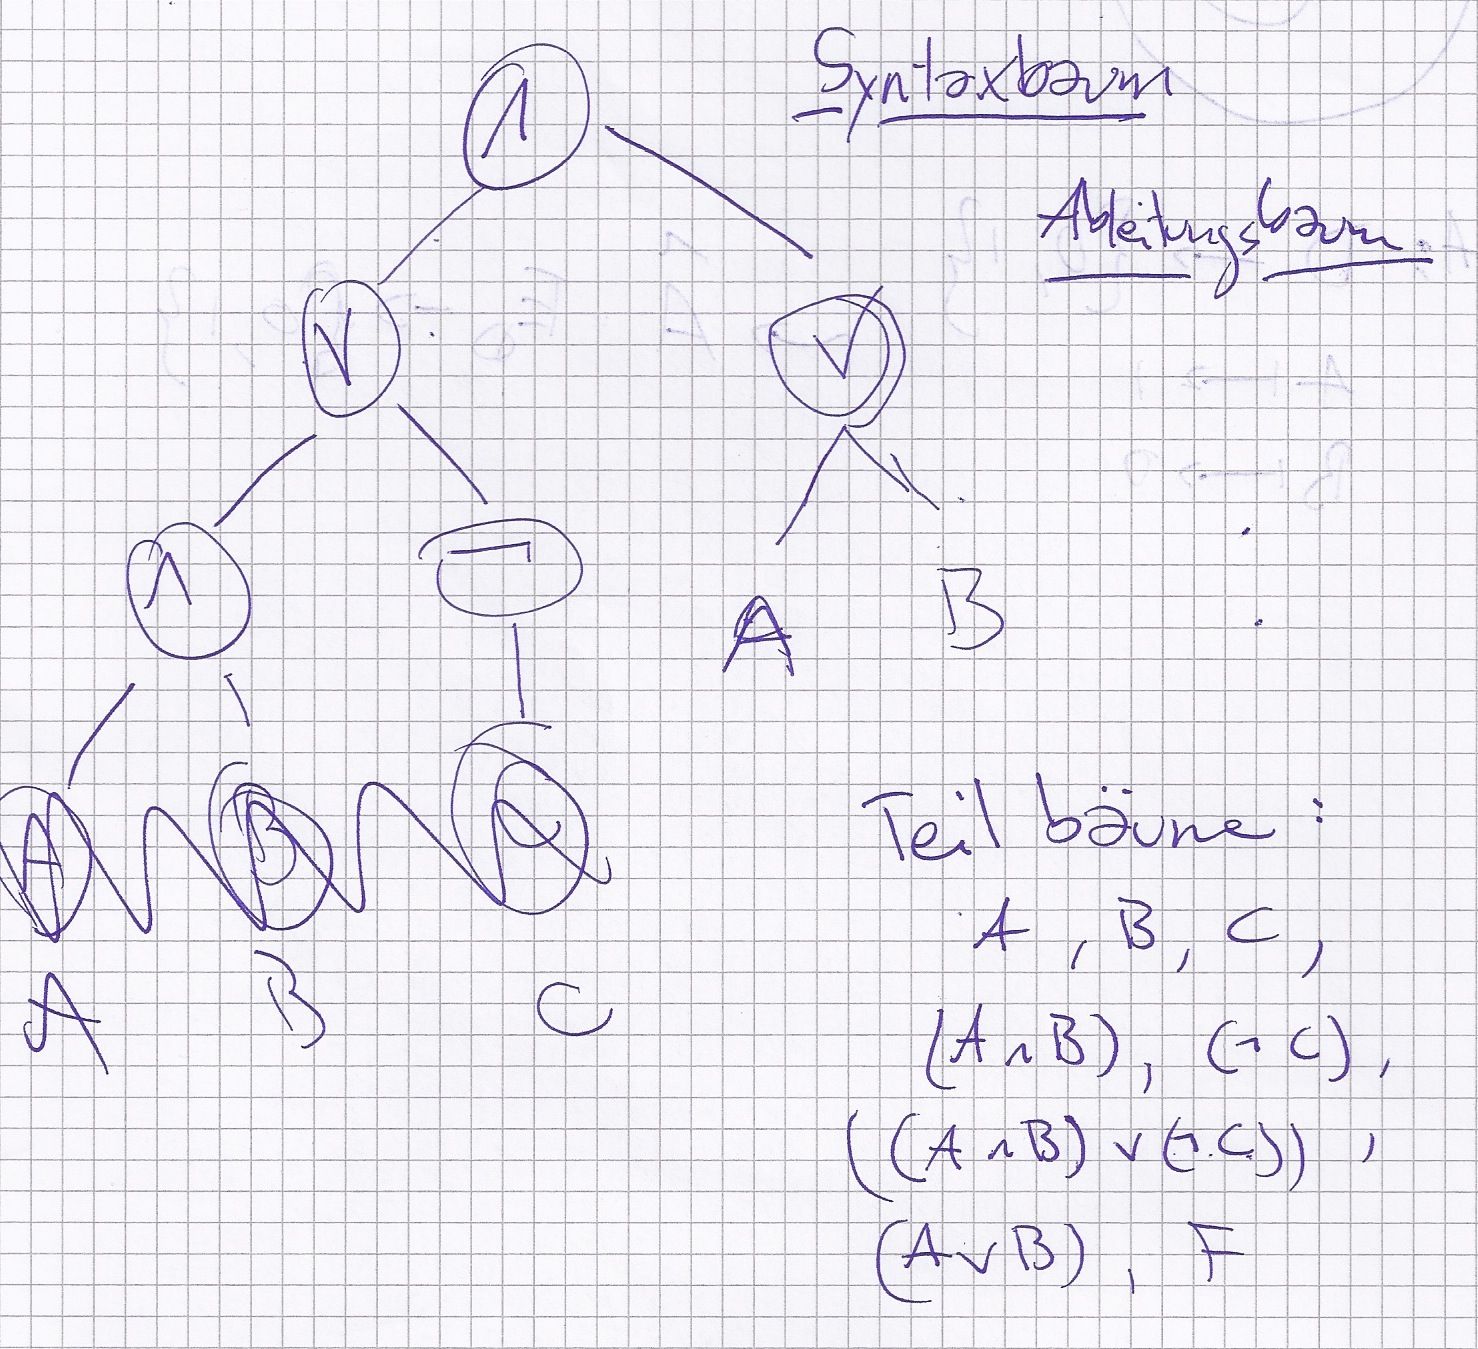 Syntaxbaum
∧
Ableitungsbaum
∨ ∨
∧ ¬
A B
A B C
Teilbäume:
A, B, C,
(A∧B), (¬C),
((A∧B)∨(¬C)),
(A∨B), F